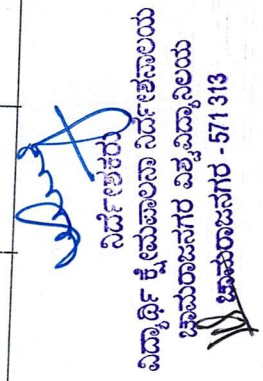 ನಿರ್ದೇಶಕರು
ವಿದ್ಯಾರ್ಥಿ ಕ್ಷೇಮಪಾಲನಾ ನಿರ್ದೇಶನಾಲಯ
ಚಾಮರಾಜನಗರ ವಿಶ್ವವಿದ್ಯಾನಿಲಯ
ಚಾಮರಾಜನಗರ - 571 313